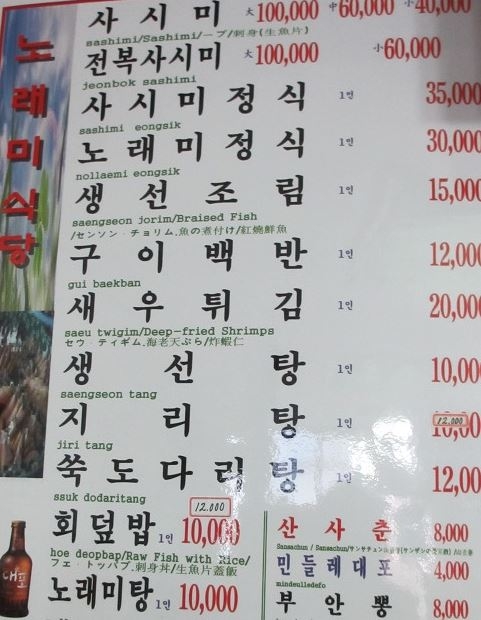 노래미식당
사시미 大100,000 中60,000 小40,000
sashimi/Sashimi/ープ/刺身(生魚片)
전복사시미 大100,000 小60,000
jeonbok sashimi
사시미정식 1인 35,000
sashimi eongsik
노래미정식 1인 30,000
nollaemi eongsik
생선조림 1인 15,000
saengseon jorim/Braised Fish
/センソン・チョリム.魚の煮付け/紅燒鮮魚
구이백반 1인 12,000
gui baekban
새우튀김 1인 20,000
saeu twigim/Deep-fried Shrimps
セウ・ティギム.海老天ぷら/炸蝦仁
생선탕 1인 10,000
saengseon tang
지리탕 1인 12,000
jiri tang
쑥도다리탕 1인 12,000
ssuk dodaritang
12,000
회덮밥 1인 10,000
hoe deopbap/Raw Fish with Rice/
フェ・トッパプ.刺身丼/生魚片蓋飯
노래미탕 1인 10,000
산사춘 8,000
Sansachun / Sansachun/サンサチュン
민들레대포 4,000
mindeulledefo
부안뽕 8,000
대포